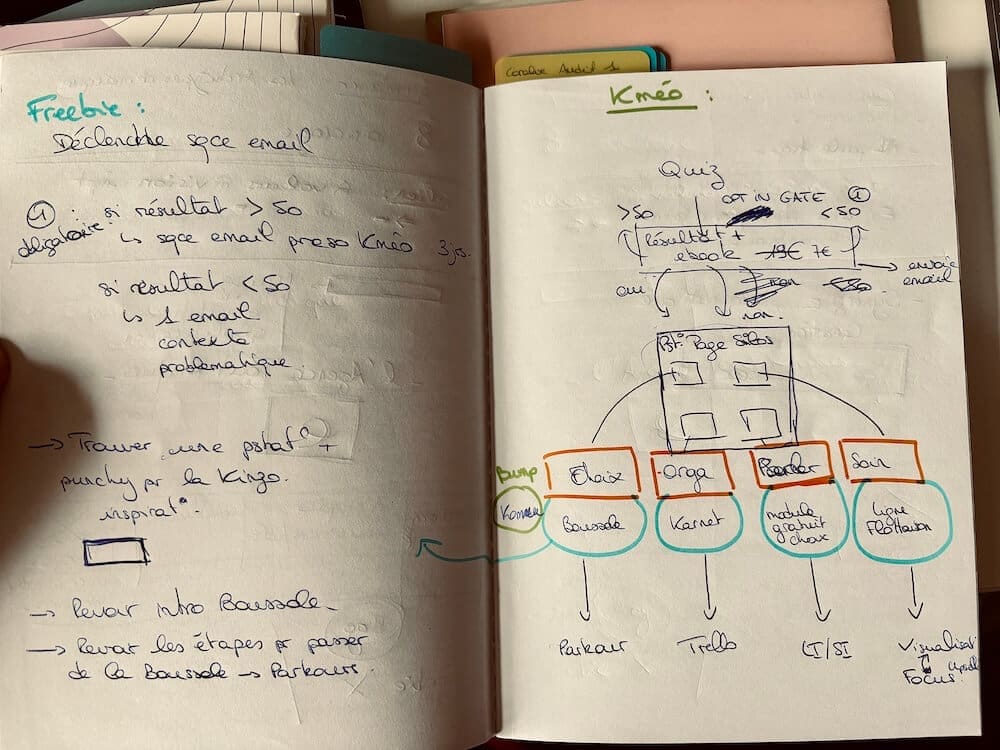 Coralie Audit 1
Freebie :
Déclenche sqce email
1 : si résultat > 50
obligatoire
↳ sqce email preso Kméo 3 js.
si résultat < 50
↳ 1 email
contexte
problematique
→ Trouver une pstat° +
punchy pr la Kinzo.
inspirat°.
→ Revoir intro Boussole.
→ Revoir les étapes pr passer
de la Boussole → Parkour.
Kméo :
Quiz
OPT IN GATE 1
>50
<50
Résultat +
ebook 19€ 7€
→ envoie
email
oui
non
non.
Pst° Page Silos
Bump
Choix
Orga
Parler
Soin
Boussole
Karnet
module
gratuit
choix
ligne
Flottaison
Parkour
Trello
CI/SI
Visualisat°
Focus